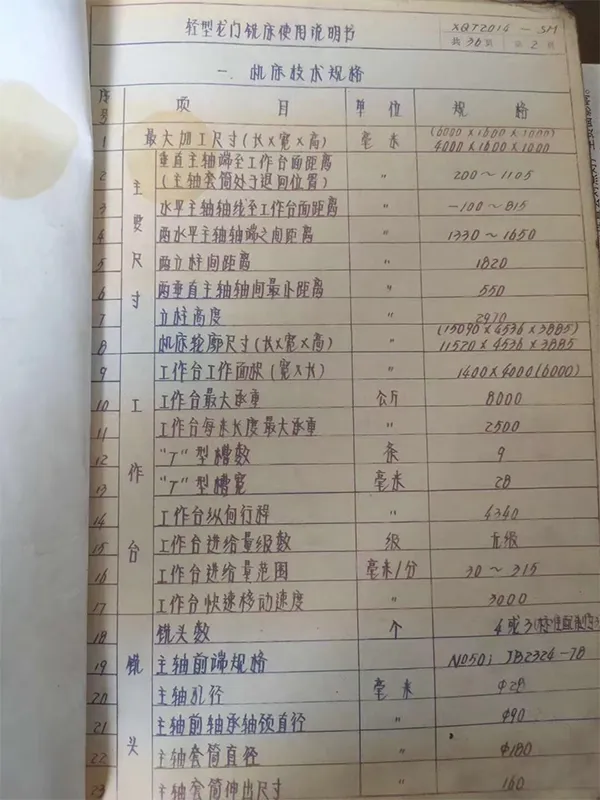 轻型龙门铣床使用说明书 XQT2014-SM
共36页 第2页
一. 机床技术规格
序号 项目 单位 规格
主要尺寸
1 最大加工尺寸(长×宽×高) 毫米 (6000×1600×1000)
4000×1600×1000
2 垂直主轴端至工作台面距离
(主轴套筒处于退回位置) 〃 200~1105
3 水平主轴轴线至工作台面距离 〃 -100~815
4 两水平主轴轴端之间距离 〃 1330~1650
5 两立柱间距离 〃 1820
6 两垂直主轴轴间最小距离 〃 550
7 立柱高度 〃 2970
8 机床轮廓尺寸(长×宽×高) 〃 (15090×4536×3885)
11520×4536×3885
工作台
9 工作台工作面积(宽×长) 〃 1400×4000(6000)
10 工作台最大承重 公斤 8000
11 工作台每米长度最大承重 〃 2500
12 "T"型槽数 条 9
13 "T"型槽宽 毫米 28
14 工作台纵向行程 〃 4340
15 工作台进给量级数 级 无级
16 工作台进给量范围 毫米/分 30~315
17 工作台快速移动速度 〃 3000
铣头
18 铣头数 个 4或3
19 主轴前端规格 NO50; JB2324-78
20 主轴孔径 毫米 φ28
21 主轴前轴承轴颈直径 〃 φ90
22 主轴套筒直径 〃 φ180
23 主轴套筒伸出尺寸 〃 160